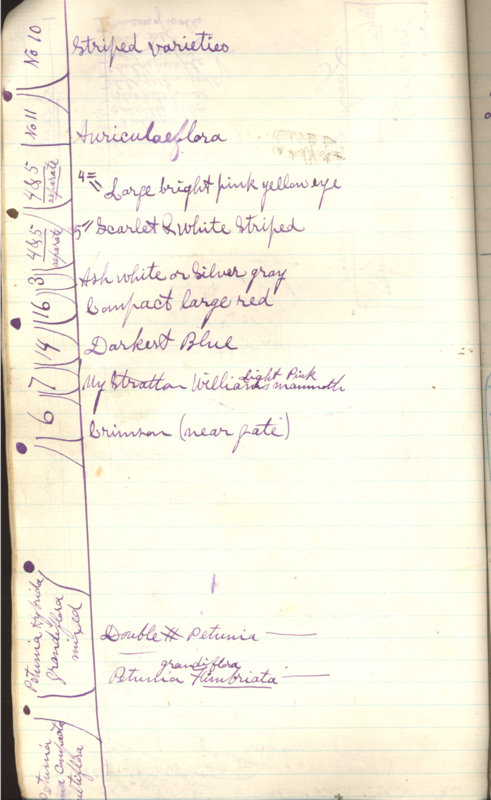 No 10
Striped varieties
No 11
Auriculaeflora
4 & 5
separate
4 = " Large bright pink yellow eye
4 & 5
separate
5 " Scarlet & White Striped
3
Ash white or Silver gray
16
Compact large red
14
Darkest Blue
7
My Stratton Williams Light Pink mammoth
6
Crimson (near gate)
Petunia Hybrida
grandiflora
mixed
Double # Petunia —
grandiflora
Petunia Fimbriata —
Petunia